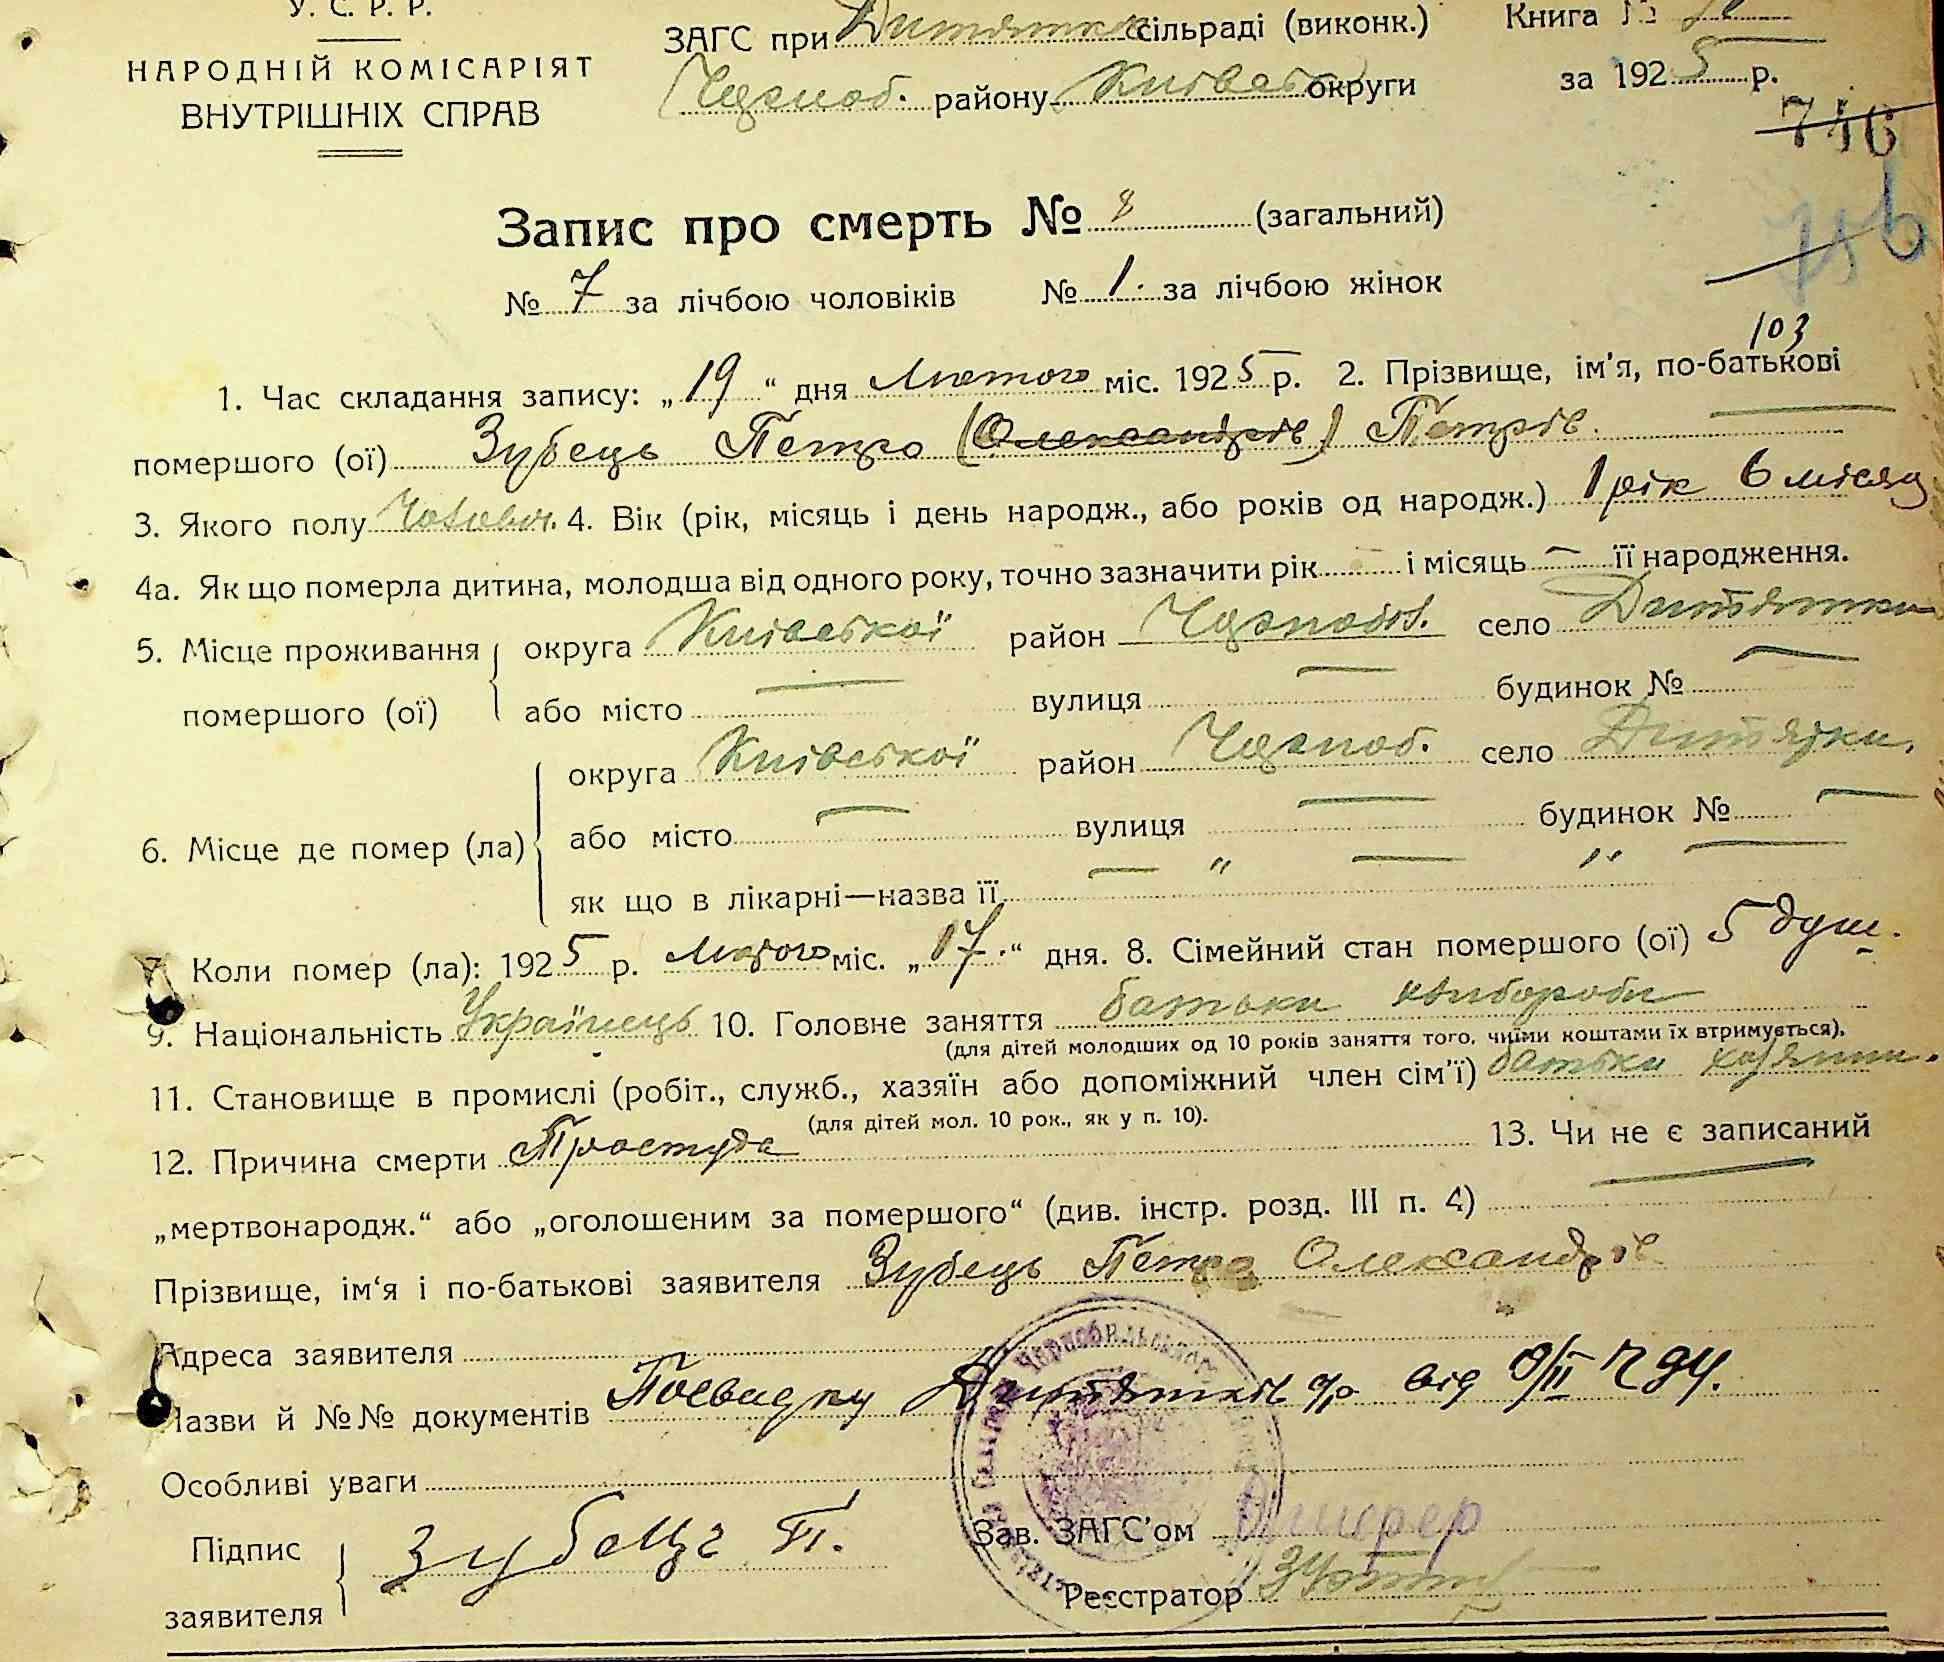 У. С. Р. Р.
НАРОДНІЙ КОМІСАРІЯТ
ВНУТРІШНІХ СПРАВ
ЗАГС при Дитятк сільраді (виконк.)
Чорноб. району Київськ округи
Книга №
за 1925 р.
746
103
Запис про смерть № 8 (загальний)
№ 7 за лічбою чоловіків № 1. за лічбою жінок
1. Час складання запису: „19“ дня Лютого міс. 1925 р. 2. Прізвище, ім’я, по-батькові
помершого (ої) Зубець Петро (Олександрів) Петрів.
3. Якого полу Чоловіч. 4. Вік (рік, місяць і день народж., або років од народж.) 1 рік 6 місяц
4а. Як що померла дитина, молодша від одного року, точно зазначити рік — і місяць — її народження.
5. Місце проживання помершого (ої) округа Київської район Чорноб. село Дитятки
або місто — вулиця — будинок № —
6. Місце де помер (ла) округа Київської район Чорноб. село Дитятки.
або місто — вулиця — будинок № —
як що в лікарні—назва її — „ — „ —
7. Коли помер (ла): 1925 р. Лютого міс. „17.“ дня. 8. Сімейний стан помершого (ої) 5 душ.
9. Національність Українець 10. Головне заняття батьки хлібороби
(для дітей молодших од 10 років заняття того, чиїми коштами їх втримується).
11. Становище в промислі (робіт., служб., хазяїн або допоміжний член сім’ї) батьки хозяини.
(для дітей мол. 10 рок., як у п. 10).
12. Причина смерти Простуда 13. Чи не є записаний
„мертвонародж.“ або „оголошеним за померщого“ (див. інстр. розд. III п. 4) —
Прізвище, ім‘я і по-батькові заявителя Зубець Петро Олександрів
Адреса заявителя
Назви й №№ документів Посвідку Дитятків від
Особливі уваги
Підпис заявителя Зубець П.
Зав. ЗАГС’ом
Реєстратор